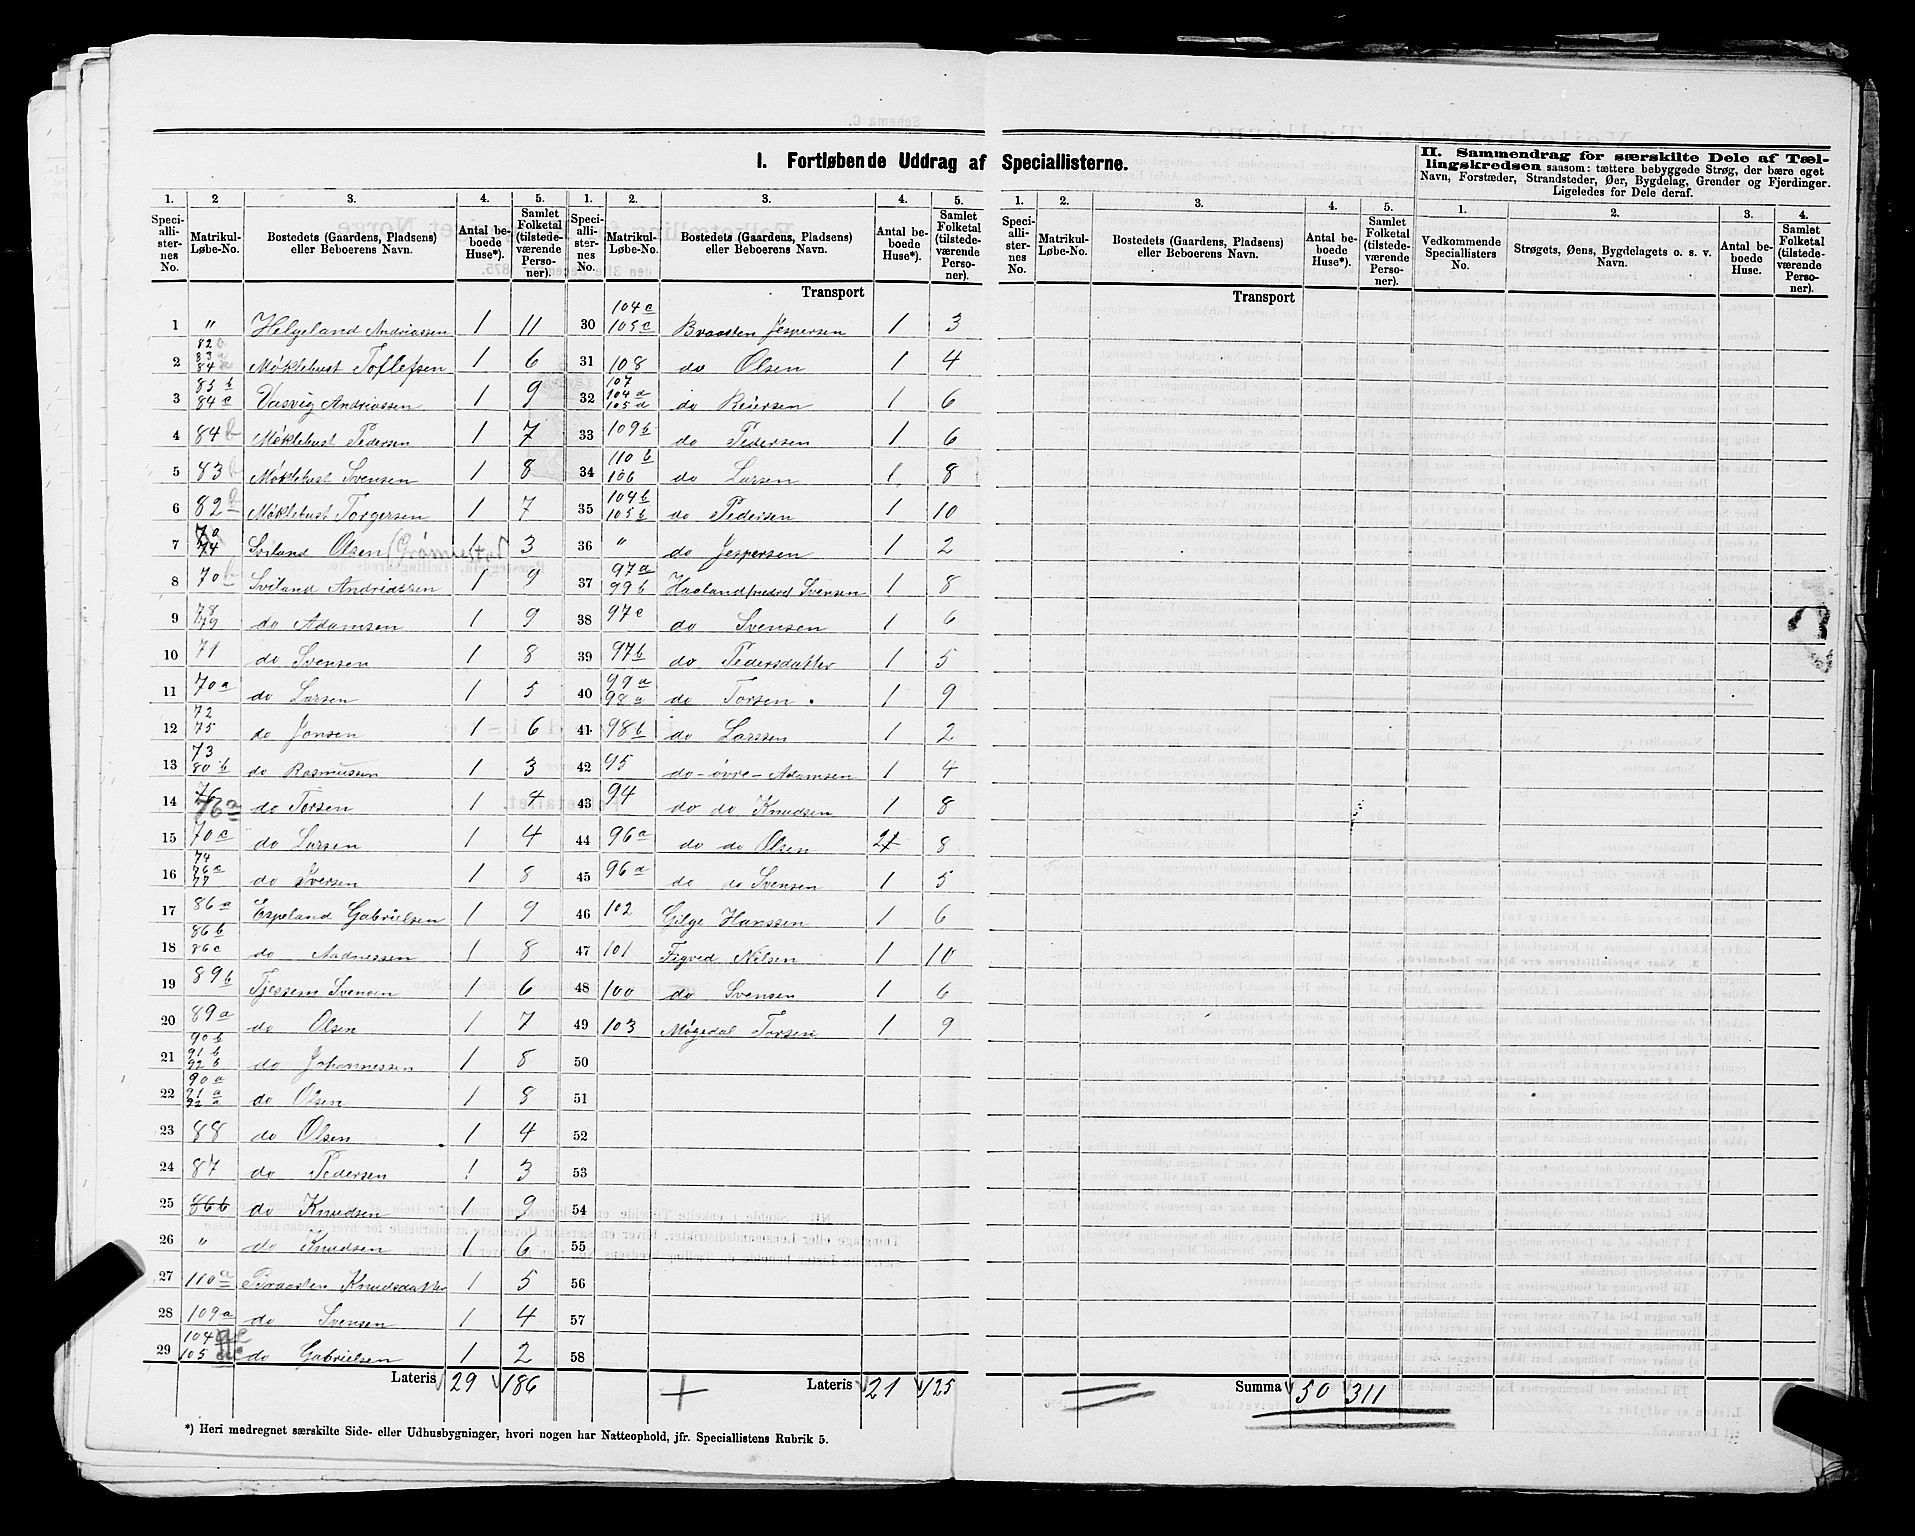 I. Fortløbende Uddrag af Speciallisterne.
II. Sammendrag for særskilte Dele af Tællingskredsen saasom: tættere bebyggede Strøg, der bære eget Navn, Forstæder, Strandsteder, Øer, Bygdelag, Grender og Fjerdinger. Ligeledes for Dele deraf.
1. 2 3. 4. 5. 1. 2. 3. 4. 5. 1. 2. 3. 4. 5. 1. 2. 3. 4.
Speciallisternes No. Matrikul-Løbe-No. Bostedets (Gaardens, Pladsens) eller Beboerens Navn. Antal beboede Huse*). Samlet Folketal (tilstedeværende Personer).
Speciallisternes No. Matrikul-Løbe-No. Bostedets (Gaardens, Pladsens) eller Beboerens Navn. Antal beboede Huse*). Samlet Folketal (tilstedeværende Personer).
Speciallisternes No. Matrikul-Løbe-No. Bostedets (Gaardens, Pladsens) eller Beboerens Navn. Antal beboede Huse*). Samlet Folketal (tilstedeværende Personer).
Vedkommende Speciallisters No. Strøgets, Øens, Bygdelagets o. s. v. Navn. Antal beboede Huse. Samlet Folketal (tilstedeværende Personer).
Transport Transport
1 " Helgeland Andriassen 1 11
2 82 83 84 Møklebust Toflefsen 1 6
3 85 b 84 c Vasvig Andriassen 1 9
4 84 b Møklebust Pedersen 1 7
5 83 b Møklebust Svensen 1 8
6 82 Møklebust Torgersen 1 7
7 74 Sviland Olsen 1 3
8 70 b Sviland Andriassen 1 9
9 78 79 do Adamsen 1 9
10 71 do Svensen 1 8
11 70 a do Larsen 1 5
12 72 75 do Jonsen 1 6
13 73 80 b do Rasmussen 1 3
14 76 a do Torsen 1 4
15 70 c do Larsen 1 4
16 74 76 c 77 do Iversen 1 8
17 86 a Espeland Gabrielsen 1 9
18 86 b 86 c do Aadnessen 1 8
19 89 b Tjessem Svensen 1 6
20 89 a do Olsen 1 7
21 90 b 91 b 92 b do Johannessen 1 8
22 90 a 91 a 92 a do Olsen 1 8
23 88 do Olsen 1 4
24 87 do Pedersen 1 3
25 86 b do Knudsen 1 9
26 " do Knudsen 1 6
27 110 a Braasten Knudsdatter 1 5
28 109 a do Svensen 1 4
29 104 105 do Gabrielsen 1 2
Lateris 29 186
30 104 c 105 c Braasten Jespersen 1 3
31 108 do Olsen 1 4
32 107 104 a 105 d do Reiersen 1 6
33 109 b do Pedersen 1 6
34 110 b 106 do Larsen 1 8
35 104 b 105 b do Pedersen 1 10
36 " do Jespersen 1 2
37 97 a 99 b Haaland (nedre) Svensen 1 8
38 97 c do Svensen 1 6
39 97 b do Pedersdatter 1 5
40 99 a 98 a do Torsen 1 9
41 98 b do Larssen 1 2
42 95 do - øvre - Adamsen 1 4
43 94 do do Knudsen 1 8
44 96 a do do Olsen 2 8
45 96 a do do Svensen 1 5
46 102 Gilge Hanssen 1 6
47 101 Figved Nilsen 1 10
48 100 do Svensen 1 6
49 103 Møgedal Torsen 1 9
50
51
52
53
54
55
56
57
58
Lateris 21 125
Summa 50 311
*) Heri medregnet særskilte Side- eller Udhusbygninger, hvori nogen har Natteophold, jfr. Speciallistens Rubrik 5.